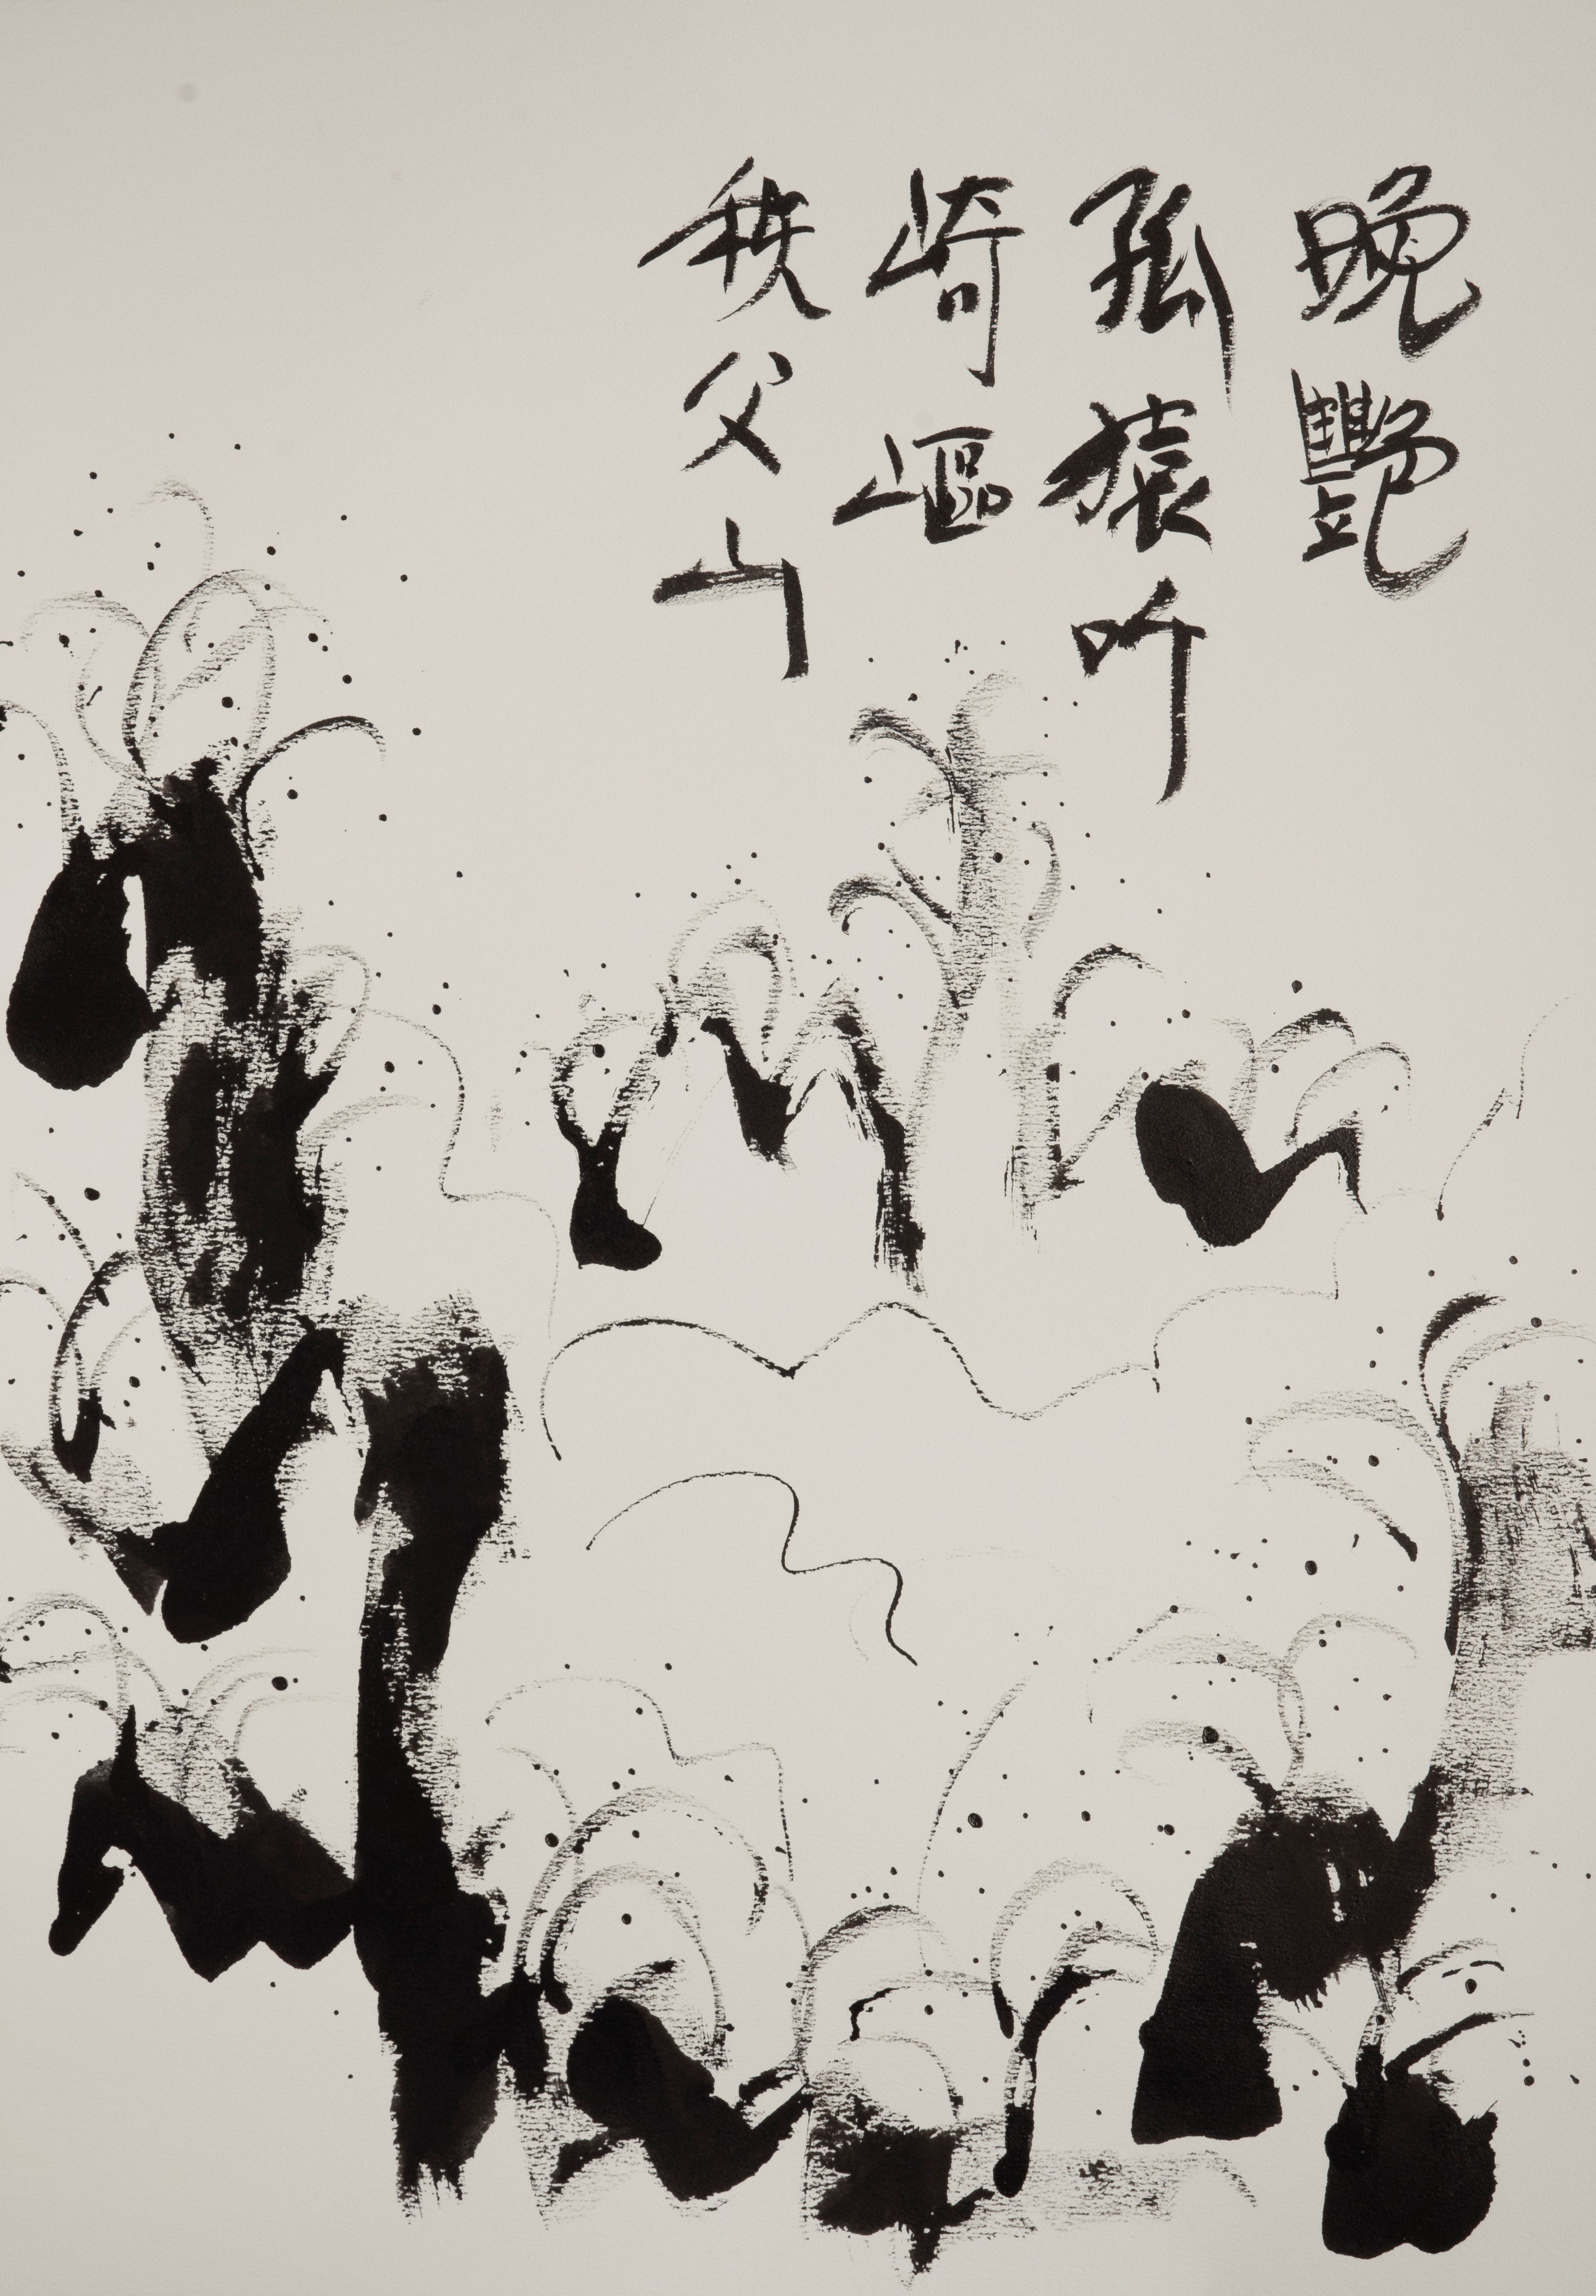 晩艷
孤猿吟
崎嶇
秩父山